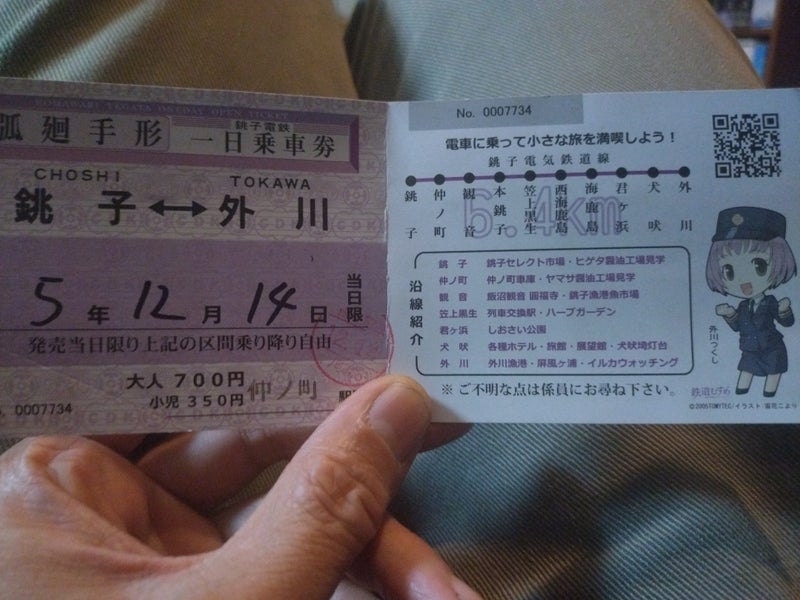 KOMAWARI TEGATA ONEDAY OPEN TICKET
弧廻手形
銚子電鉄
一日乗車券
CHOSHI TOKAWA
銚子↔外川
5年12月14日
当日限
発売当日限り上記の区間乗り降り自由
大人 700円
小児 350円
仲ノ町
駅
No. 0007734
No. 0007734
電車に乗って小さな旅を満喫しよう!
銚子電気鉄道線
銚子
仲ノ町
観音
本銚子
笠上黒生
西海鹿島
海鹿島
君ヶ浜
犬吠
外川
6.4km
沿線紹介
銚子 銚子セレクト市場・ヒゲタ醤油工場見学
仲ノ町 仲ノ町車庫・ヤマサ醤油工場見学
観音 飯沼観音 圓福寺・銚子漁港魚市場
笠上黒生 列車交換駅・ハーブガーデン
君ヶ浜 しおさい公園
犬吠 各種ホテル・旅館・展望館・犬吠埼灯台
外川 外川漁港・屏風ヶ浦・イルカウォッチング
※ ご不明な点は係員にお尋ね下さい。
外川つくし
鉄道むすめ
©2005TOMYTEC/イラスト:宙花こより